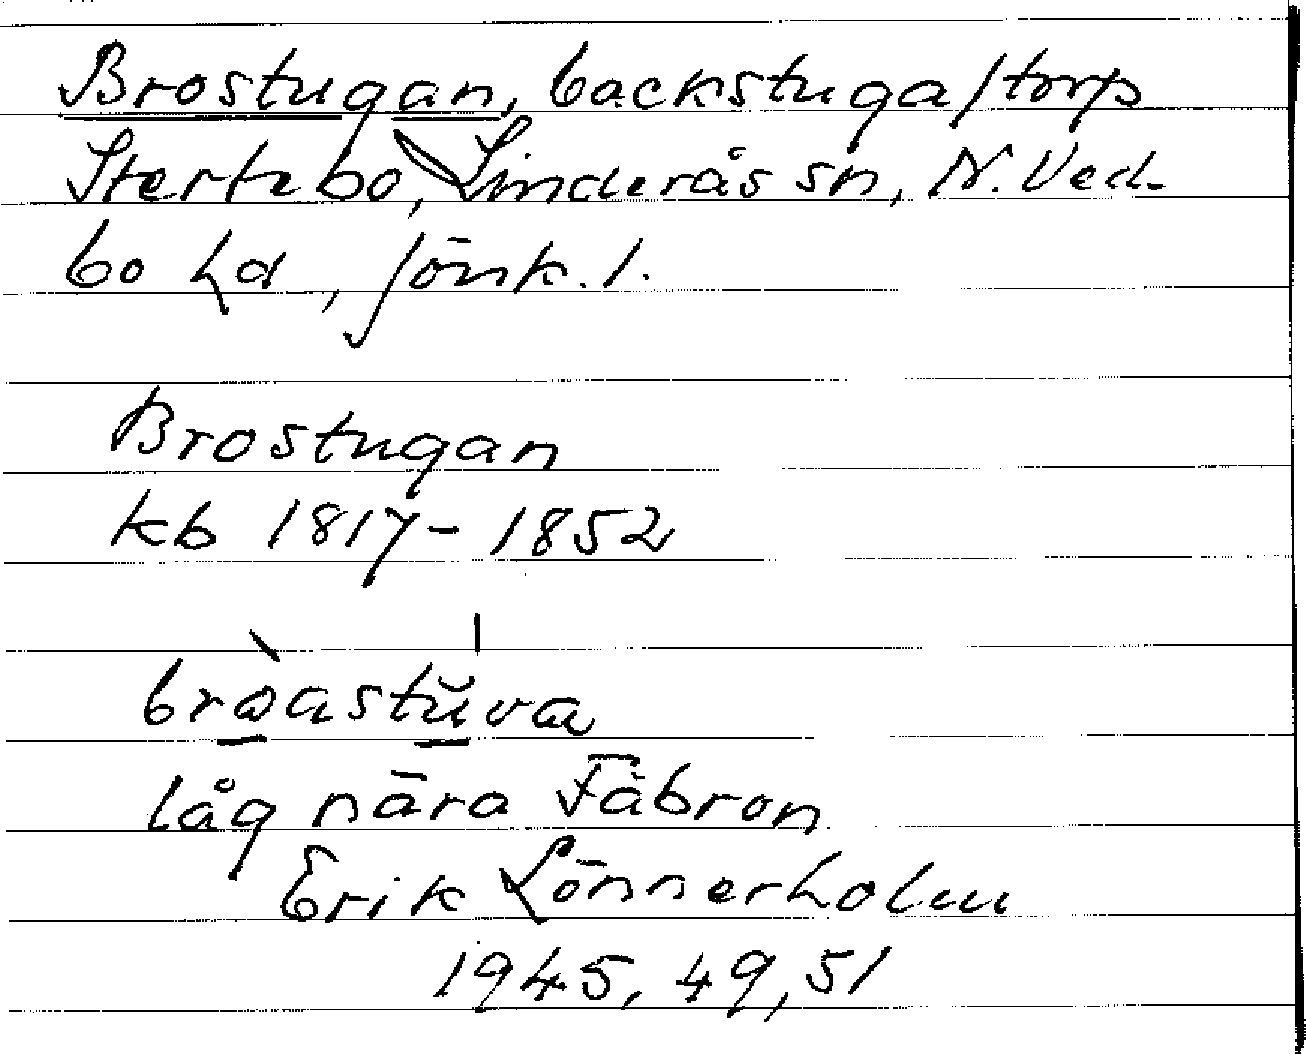 Brostugan, backstuga/torp
Stertebo, Linderås sn, N. Ved-
bo hd, Jönk. l.
Brostugan
kb 1817-1852
bròastŭva
låg nära Fäbron
Erik Lönnerholm
1945, 49, 51